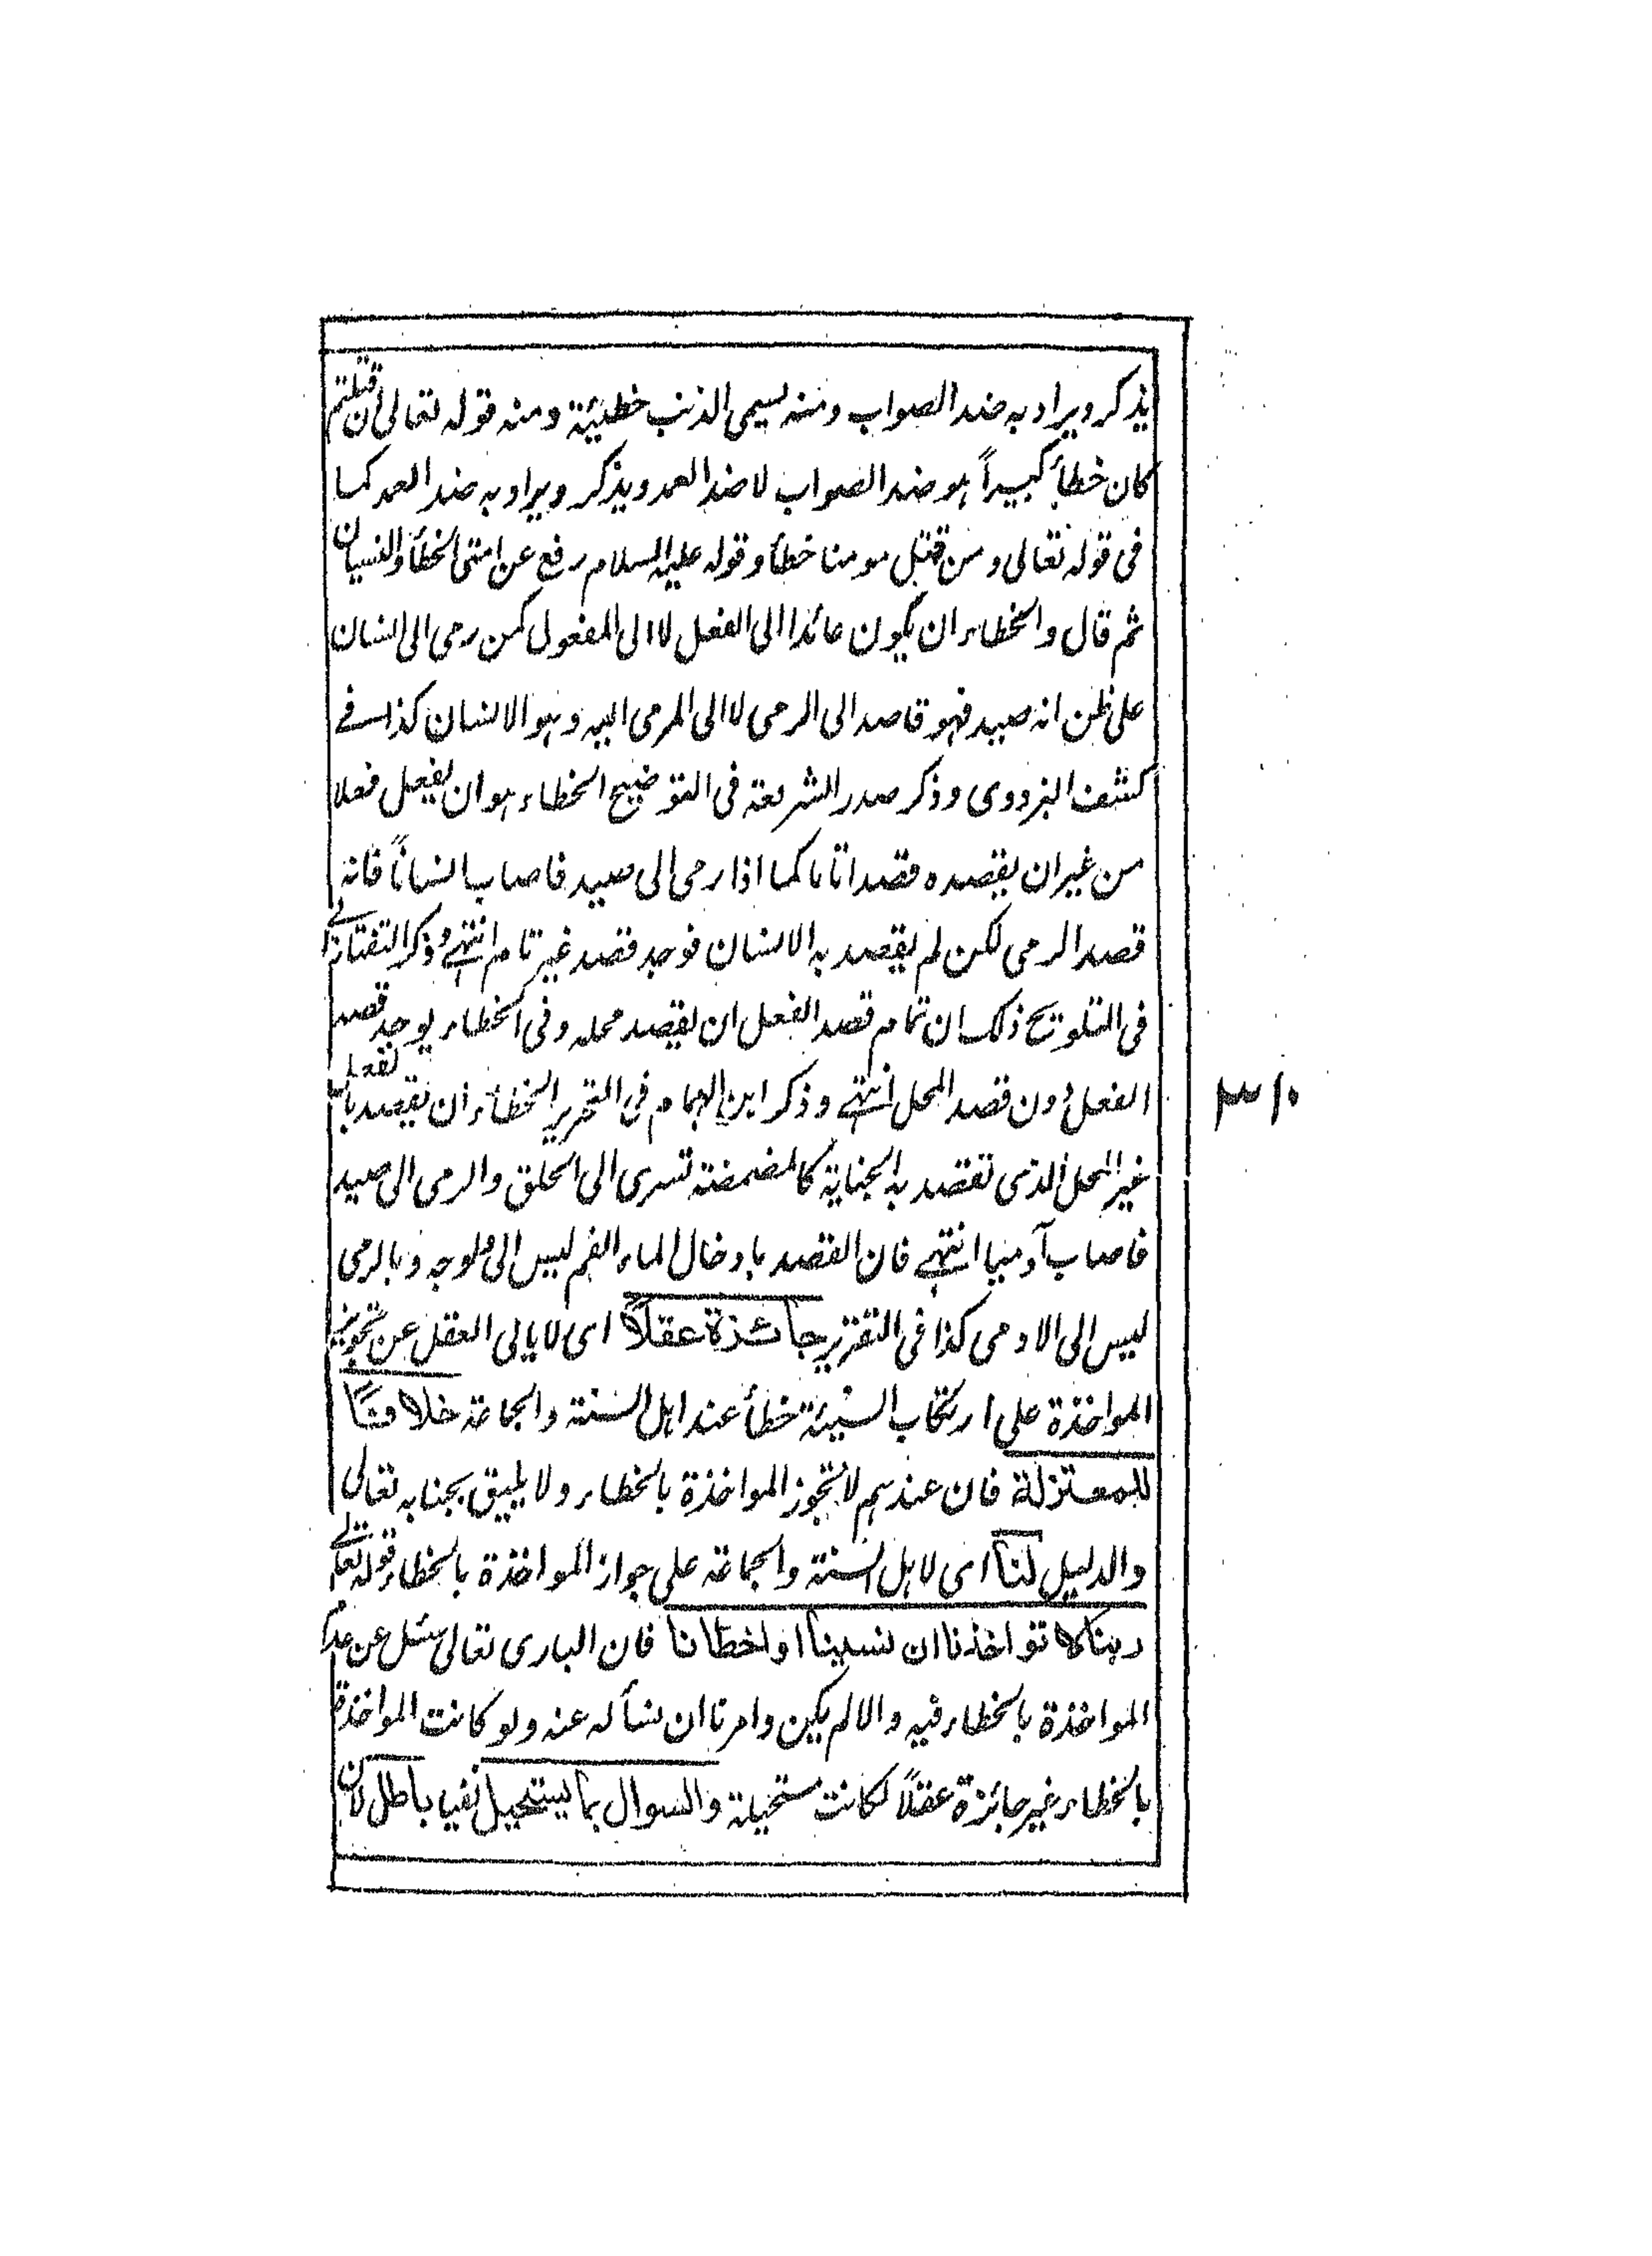 يذكر ويراد به ضد الصواب ومنه يسمى الذنب خطيئة ومنه قوله تعالى ان قتلهم
كان خطأ كبيراً هو ضد الصواب لا ضد العمد ويذكر ويراد به ضد العمد كما
فى قوله تعالى ومن قتل مومنا خطأ وقوله عليه السلام رفع عن امتى الخطأ والنسيان
ثم قال والخطاء ان يكون عائدا الى الفعل لا الى المفعول كمن رمى الى انسان
على ظن انه صيد فهو قاصد الى الرمى لا الى المرمى اليه وهو الانسان كذا فے
كشف البزدوى وذكر صدر الشريعة فى التوضيح الخطاء هو ان يفعل فعلا
من غير ان يقصده قصدا تاما كما اذا رمى الى صيد فاصاب انساناً فانه
قصد الرمى لكن لم يقصد به الانسان فوجد قصد غير تام انتهے وذكر التفتازانے
فى التلويح ذلك ان تمام قصد الفعل ان يقصد محله وفى الخطاء يوجد قصد
الفعل دون قصد المحل انتهے وذكر ابن الهمام فى التحرير الخطاء ان يقصد بالفعل
غير المحل الذى تقصد به الجناية كالمضمضة تسرى الى الحلق والرمى الى صيد
فاصاب آدميا انتهے فان القصد بادخال الماء الفم ليس الى ولوجه وبالرمى
ليس الى الادمى كذا فى التقرير جائزة عقلاً اى لا يابى العقل عن تجويز
المواخذة على ارتكاب السيئة خطأ عند اهل السنة والجماعة خلافاً
للمعتزلة فان عندهم لا تجوز المواخذة بالخطاء ولا يليق بجنابه تعالى
والدليل لنا اى لاهل السنة والجماعة على جواز المواخذة بالخطاء قوله تعالے
ربنا لا تواخذنا ان نسينا او اخطانا فان البارى تعالى سئل عن عدم
المواخذة بالخطاء فيه والا لم يكن وامرنا ان نسأله عنه ولو كانت المواخذة
بالخطاء غير جائزة عقلاً لكانت مستحيلة والسوال بما يستحيل نفيا باطل لان
٣١٠